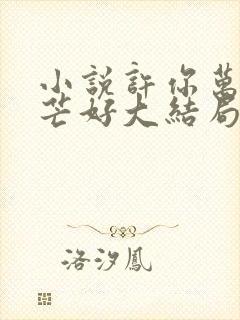 小說許你萬
芒好大結局
洛汐鳳